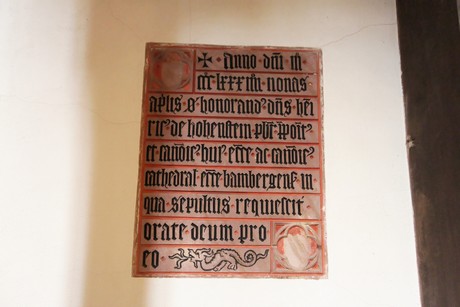 ✠ · Anno · dm̄ · m̄
cccͨ lxxxiiii · nonas
aplis · o · honorand⁹ · dn̄s · hei
ric⁹ · de hohenstein · pbr̄ · ppoit⁹
et · canōic⁹ · hui⁹ · eccē · ac · canōic⁹
cathedral · eccē · bambergens̄ · in
qua · sepultus · requiescit
orate · deum · pro
eo ·